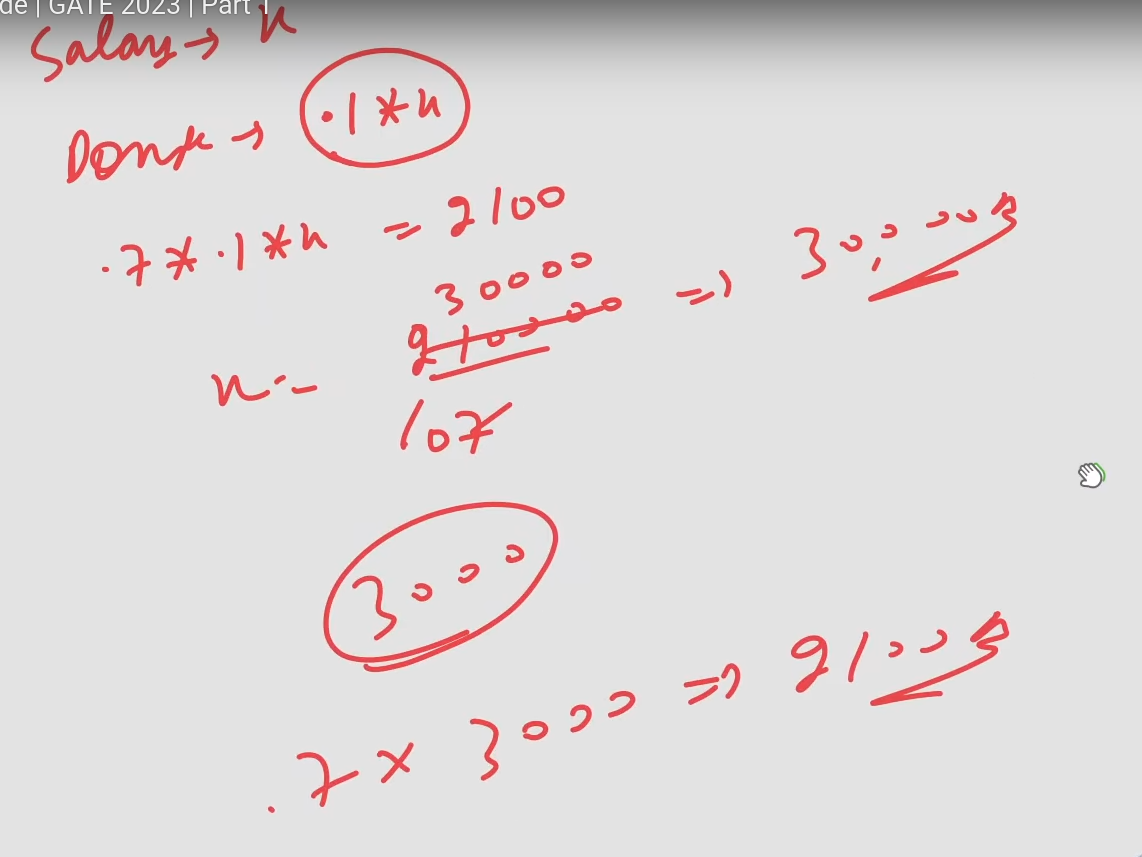 de | GATE 2023 | Part 1
Salary → x
Donate → .1*x
.7*.1*x = 2100
30000
x = 210000 => 30,000
.07
3000
.7 x 3000 => 2100